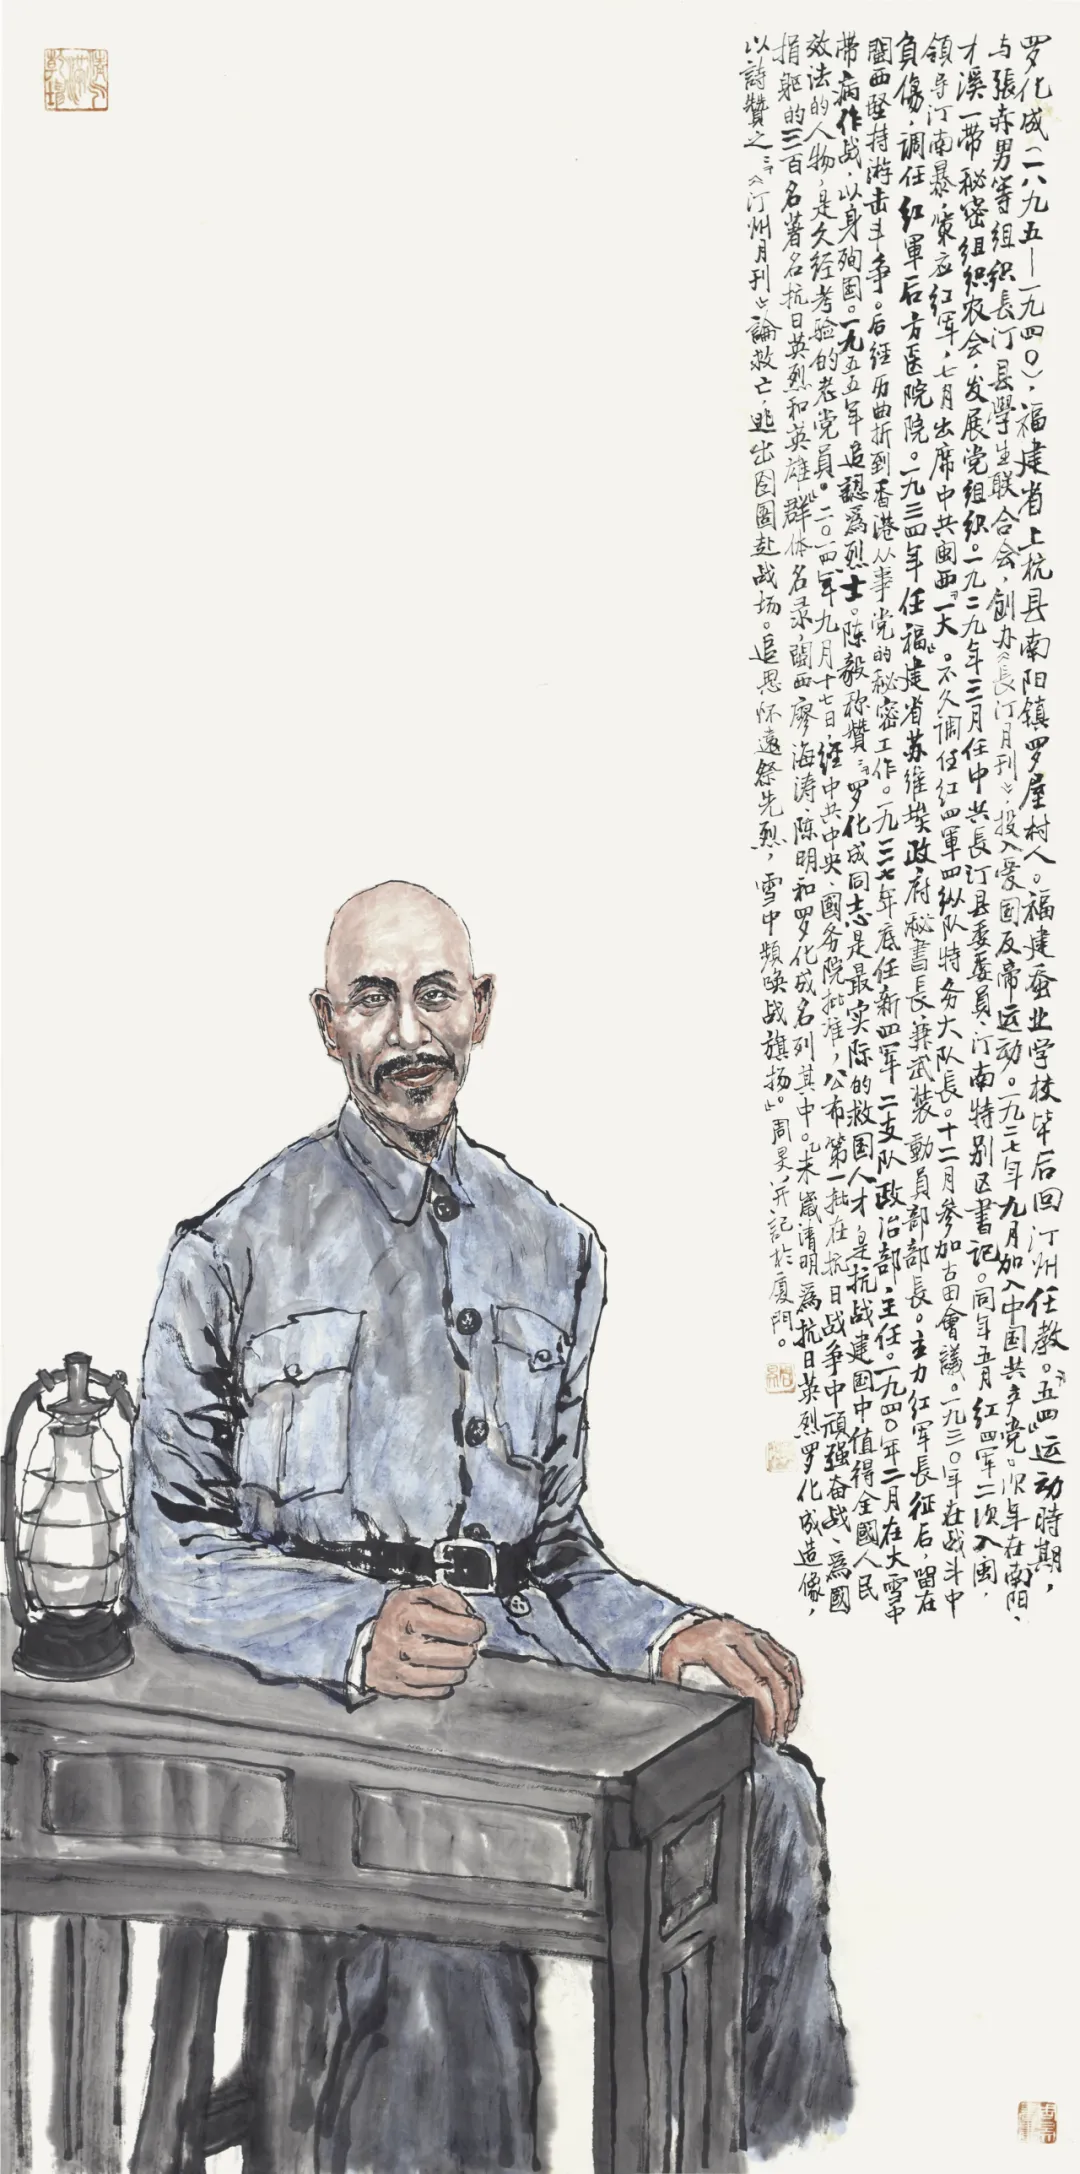 罗化成(一八九五—一九四〇),福建省上杭县南阳镇罗屋村人。福建蚕业学校毕后回汀州任教。“五四”运动時期,
与張赤男等组织長汀县學生联合会,創办《長汀月刊》,投入爱国反帝运动。一九二七年九月加入中国共产党。次年在南阳、
才溪一带秘密组织农会,发展党组织。一九二九年三月任中共長汀县委委員、汀南特别区書记。同年五月红四军二次入闽,
领导汀南暴,策应红军,七月出席中共闽西“一大”。不久调任红四軍四纵队特务大队長。十二月参加古田會議。一九三〇年在战斗中
負傷,调任红軍后方医院院。一九三四年任福建省苏维埃政府秘書長兼武装動員部部長。主力红军長征后,留在
闽西坚持游击斗争。后经历曲折到香港从事党的秘密工作。一九三七年底任新四军二支队政治部主任。一九四〇年二月在大雪中
带病作战,以身殉国。一九五五年追認爲烈士。陈毅称赞:“罗化成同志是最实际的救国人才,是抗战建国中值得全國人民
效法的人物,是久经考验的老党員。”二〇一四年九月十七日,經中共中央、國务院批准,公布第一批在抗日战争中頑强奋战、爲國
捐躯的三百名著名抗日英烈和英雄群体名录,闽西廖海涛、陈明和罗化成名列其中。乙未歲清明爲抗日英烈罗化成造像,
以詩赞之:“《汀州月刊》論救亡,逃出囹圄赴战场。追思怀遠祭先烈,雪中頻唤战旗扬。”周旻并記於厦門。